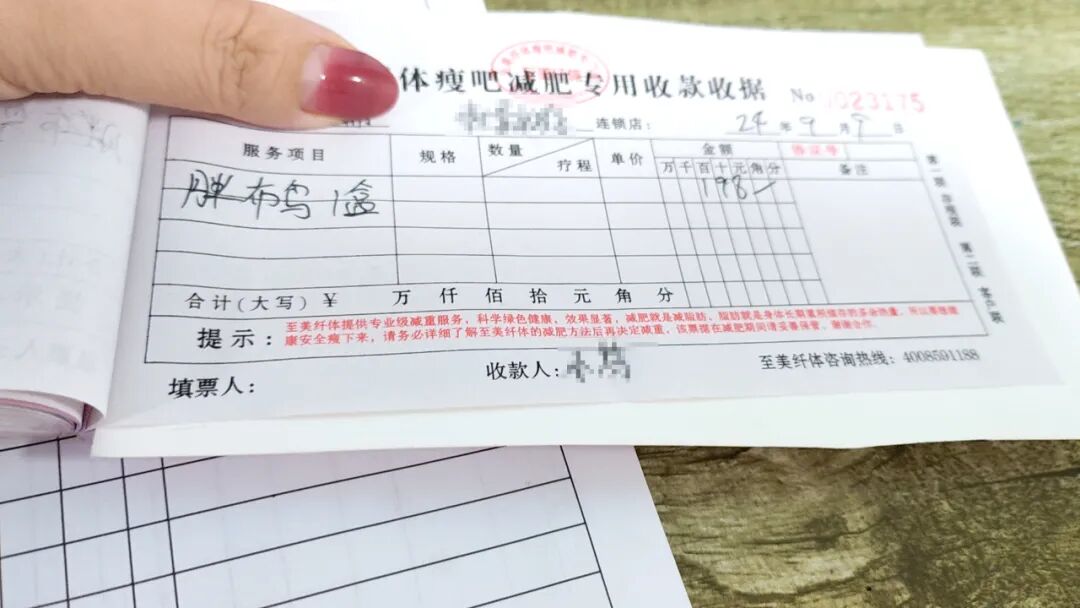 体瘦吧减肥专用收款收据 No 023175
连锁店： 24 年 9 月 9 日
服务项目 规格 数量 疗程 单价 金额 备注
万 千 百 十 元 角 分
胖布鸟1盒 198-
合计(大写) ￥ 万 仟 佰 拾 元 角 分
提示： 至美纤体提供专业级减重服务，科学绿色健康，效果显著，减肥就是减脂肪，脂肪就是身体长期累积储存的多余热量，所以要想健
康安全瘦下来，请务必详细了解至美纤体的减肥方法后再决定减重，该票据在减肥期间请妥善保管，谢谢合作。
填票人： 收款人： 至美纤体咨询热线：4008591188
第一联 存根联 第二联 客户联